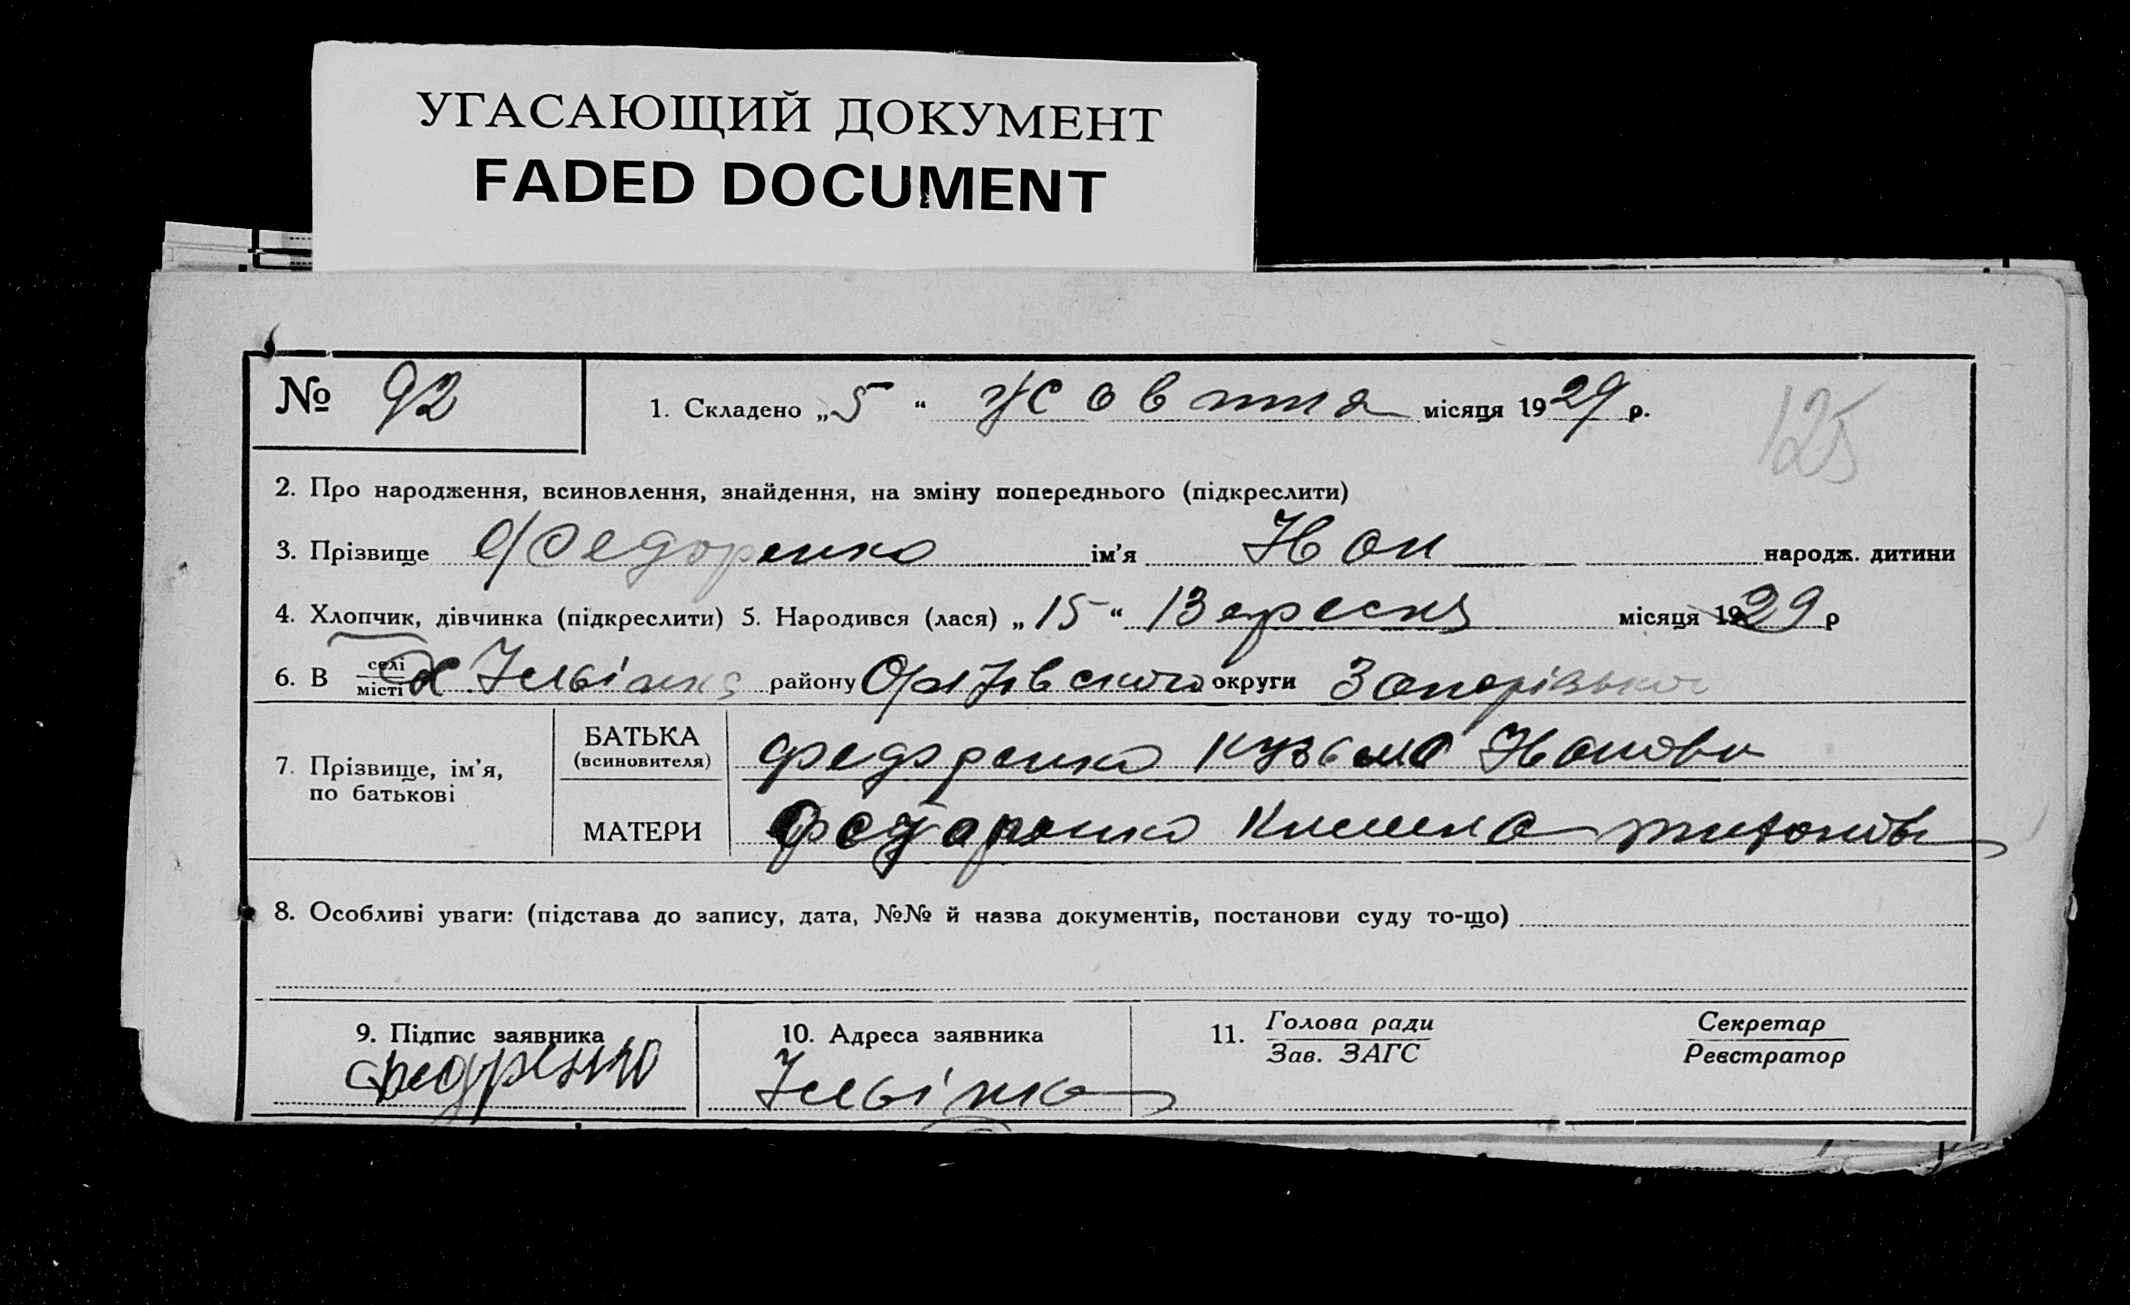 УГАСАЮЩИЙ ДОКУМЕНТ
FADED DOCUMENT
№ 92
1. Складено „ 5 “ Жовтня місяця 1929 р.
125
2. Про народження, всиновлення, знайдення, на зміну попереднього (підкреслити)
3. Прізвище Федоренко ім’я Йон народж. дитини
4. Хлопчик, дівчинка (підкреслити) 5. Народився (лася) „ 15 “ Вересня місяця 1929 р
6. В селі місті х Ільінка району Оріхівського округи Запорізької
7. Прізвище, ім’я, по батькові
БАТЬКА (всиновителя) Федоренко Кузьма
МАТЕРИ Федоренко
8. Особливі уваги: (підстава до запису, дата, №№ й назва документів, постанови суду то-що)
9. Підпис заявника
Федоренко
10. Адреса заявника
Ільінка
11. Голова ради
Зав. ЗАГС
Секретар
Реєстратор